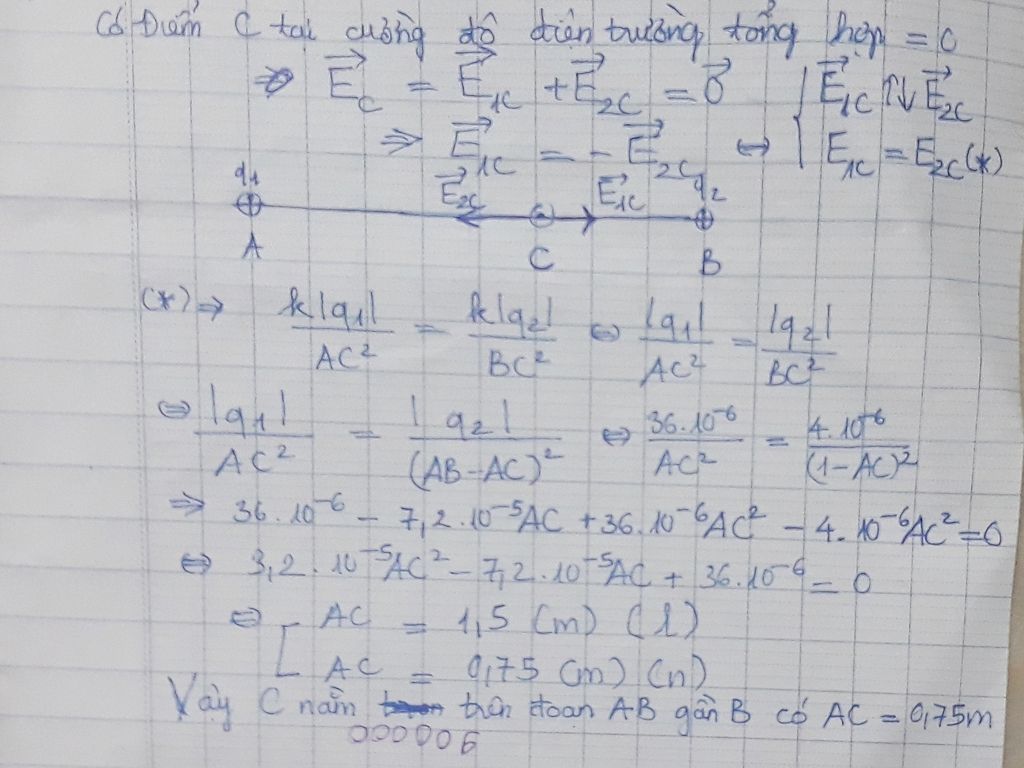 Có điểm C tại cường độ điện trường tổng hợp = 0
⇒ E⃗_C = E⃗_1C + E⃗_2C = 0⃗ { E⃗_1C ↑↓ E⃗_2C
⇒ E⃗_1C = - E⃗_2C ⇔ E_1C = E_2C (*)
q₁ E⃗_2C E⃗_1C q₂
A C B
(*) ⇒ k|q₁| / AC² = k|q₂| / BC² ⇔ |q₁| / AC² = |q₂| / BC²
⇔ |q₁| / AC² = |q₂| / (AB-AC)² ⇔ 36.10⁻⁶ / AC² = 4.10⁻⁶ / (1-AC)²
⇒ 36.10⁻⁶ - 7,2.10⁻⁵AC + 36.10⁻⁶AC² - 4.10⁻⁶AC² = 0
⇔ 3,2.10⁻⁵AC² - 7,2.10⁻⁵AC + 36.10⁻⁶ = 0
⇔ [ AC = 1,5 (m) (l)
AC = 0,75 (m) (n)
Vậy C nằm trên đoạn AB gần B có AC = 0,75m